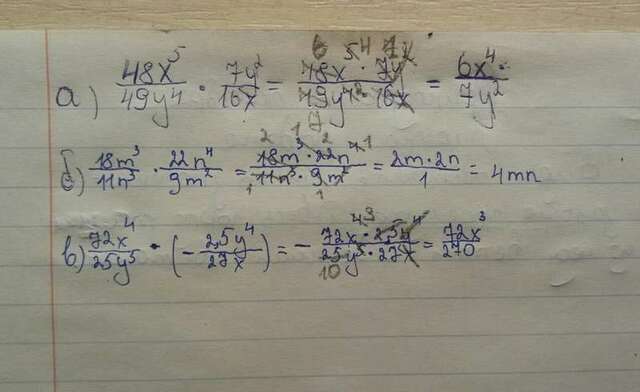 а) 48x⁵/49y⁴ · 7y²/16x = 48x⁵ · 7y²/49y⁴ · 16x = 6x⁴/7y²
б) 18m³/11n³ · 22n⁴/9m² = 18m³ · 22n⁴/11n³ · 9m² = 2m · 2n/1 = 4mn
в) 72x⁴/25y⁵ · (- 2,5y⁴/27x) = - 72x⁴ · 2,5y⁴/25y⁵ · 27x = 72x³/270